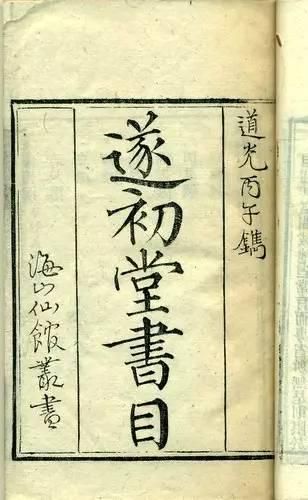 道光丙午鐫
遂初堂書目
海山仙館叢書